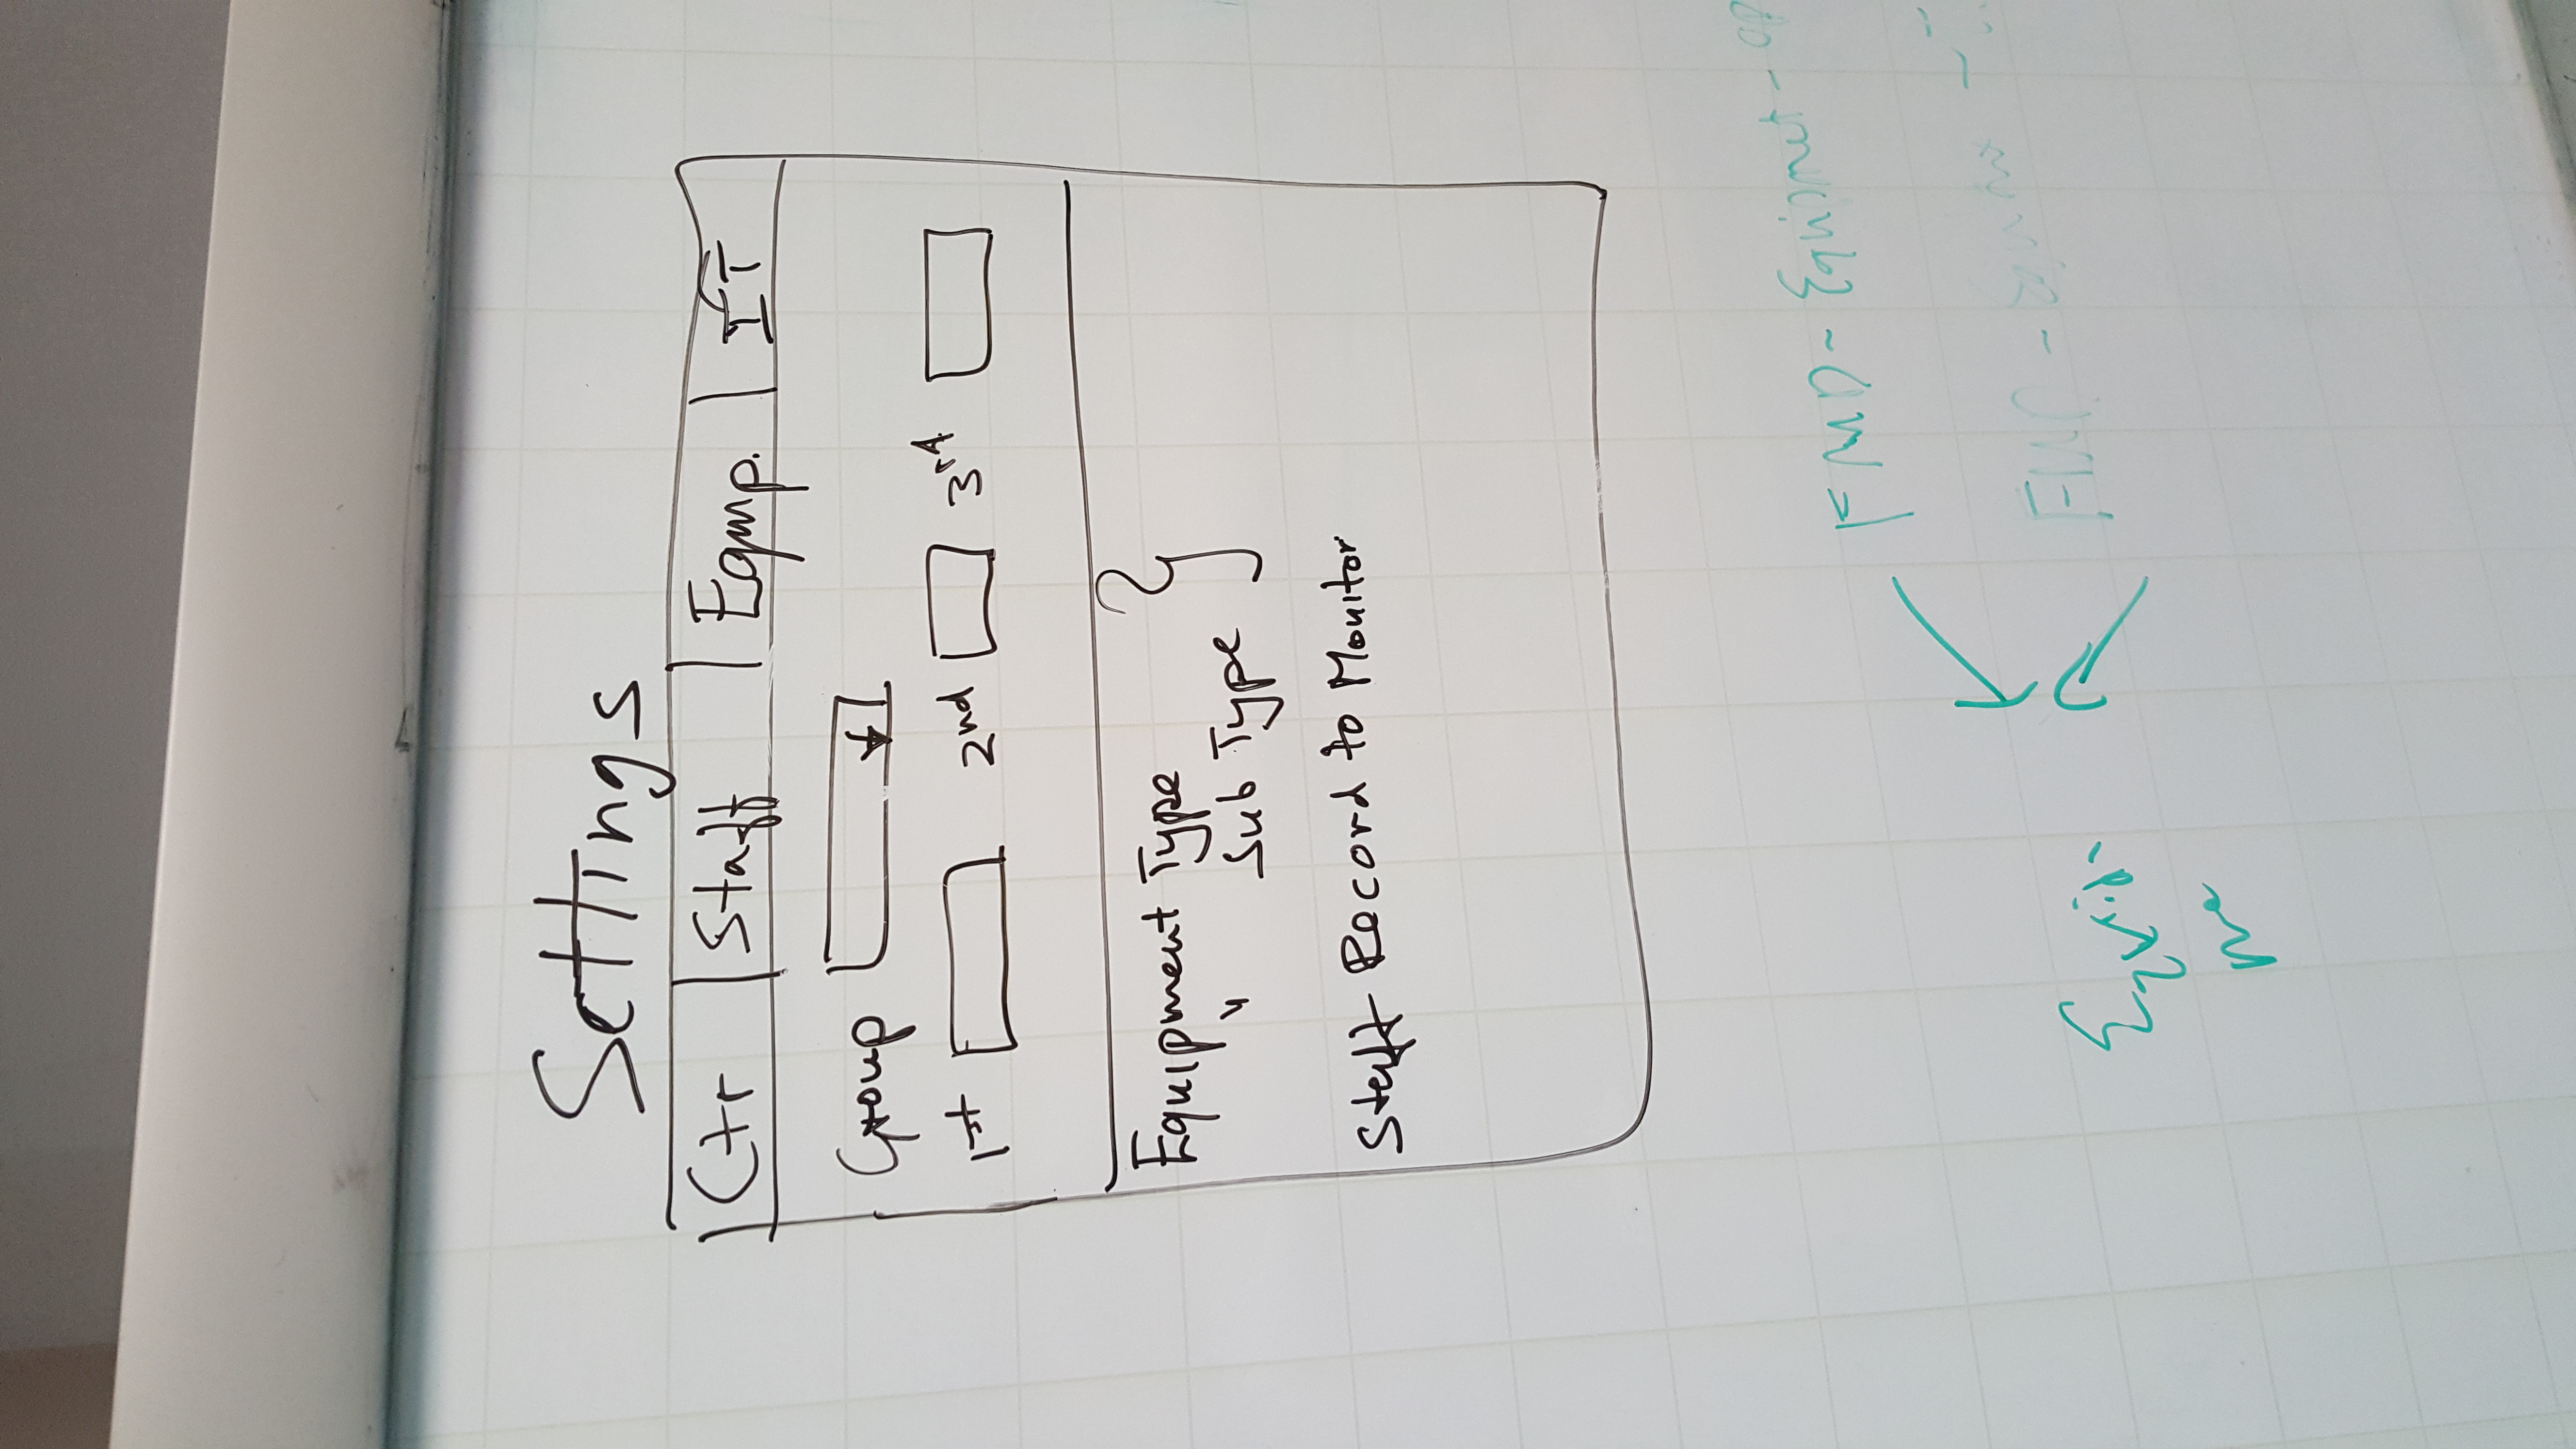 Settings
Ctr Staff Equip. IT
Group
1st 2nd 3rd
Equipment Type
" Sub Type
Staff Record to Monitor
FMD - Equipmet - OP